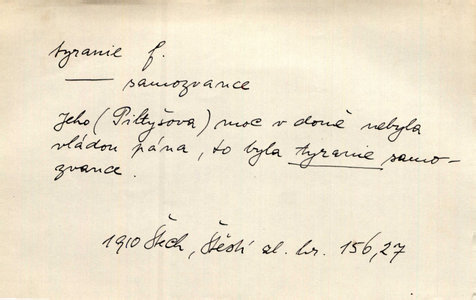 tyranie f.
samozvance
Jeho (Piltyšova) moc v domě nebyla
vládou pána, to byla tyranie samo-
zvance.
1910 Šech, Štěstí zl. hr. 156,27